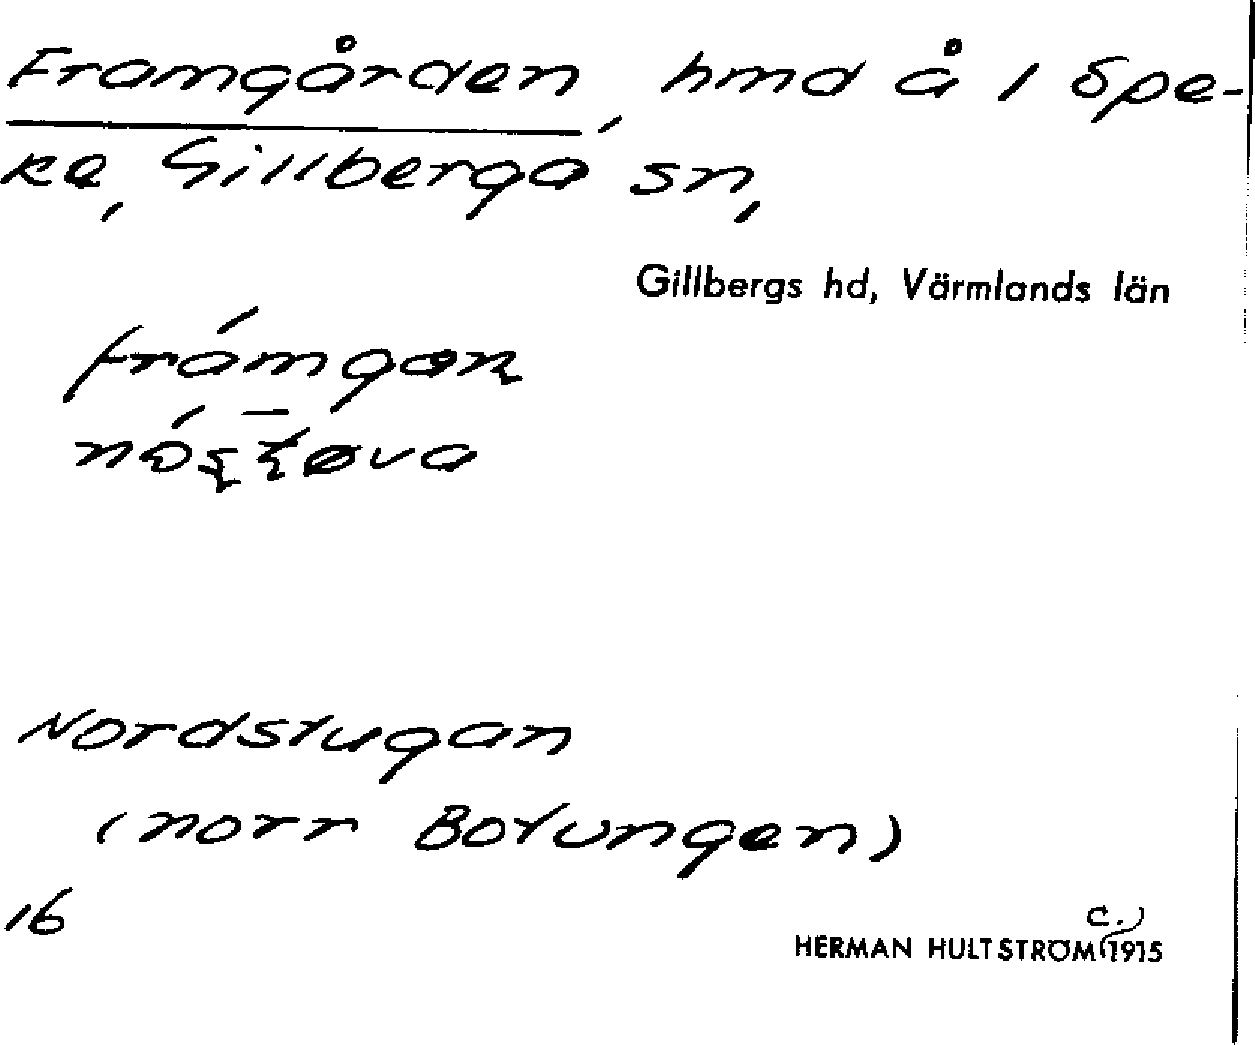 Framgården, hmd å 1 Spe-
ke, Gillberga sn,
Gillbergs hd, Värmlands län
Nordstugan
(norr Botungen)
16
c.
HERMAN HULTSTRÖM 1915